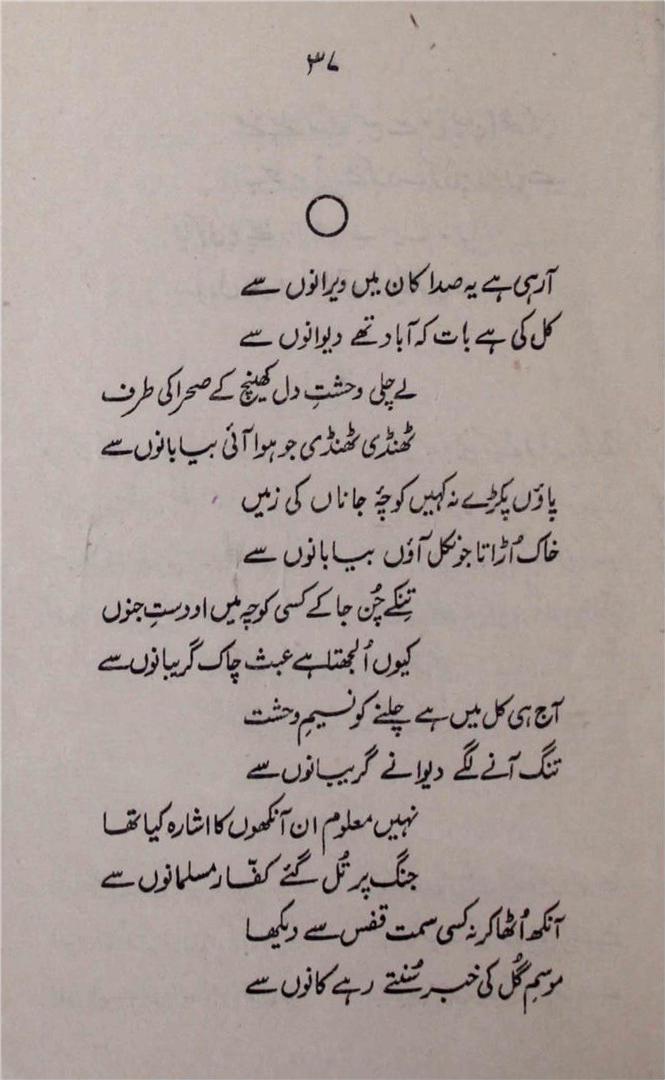 ۳۷
آرہی ہے یہ صدا کان میں ویرانوں سے
کل کی ہے بات کہ آباد تھے دیوانوں سے
لے چلی وحشتِ دل کھینچ کے صحرا کی طرف
ٹھنڈی ٹھنڈی جو ہوا آئی بیابانوں سے
پاؤں پکڑے نہ کہیں کوچۂ جاناں کی زمیں
خاک اُڑاتا جو نکل آؤں بیابانوں سے
تنکے چُن جا کے کسی کوچہ میں او دستِ جنوں
کیوں اُلجھتا ہے عبث چاک گریبانوں سے
آج ہی کل میں ہے چلنے کو نسیمِ وحشت
تنگ آنے لگے دیوانے گریبانوں سے
نہیں معلوم ان آنکھوں کا اشارہ کیا تھا
جنگ پر تُل گئے کفّار مسلمانوں سے
آنکھ اُٹھا کر نہ کسی سمت قفس سے دیکھا
موسمِ گُل کی خبر سُنتے رہے کانوں سے